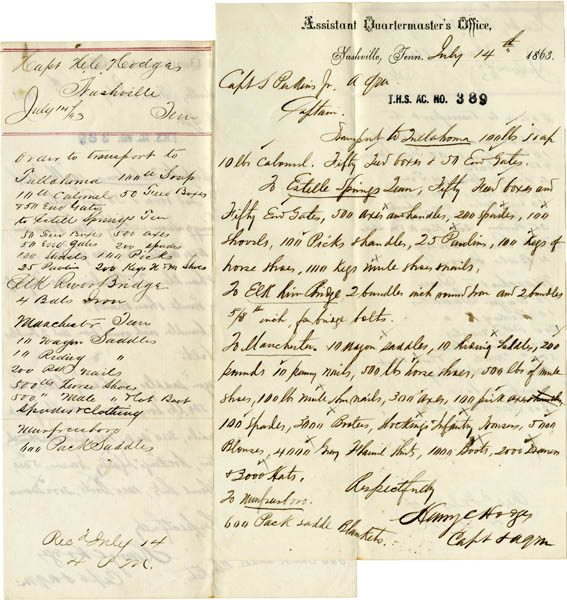 Capt H. C. Hodges
Nashville
July 14th/63 Tenn
T.H.S. AC. NO. 389
Order to transport to
Tullahoma 100 lb Soap
10 lb Calomel 50 Feed Boxes
& 50 End Gates
to Estell Springs Ten
50 Feed Boxes 500 axes
50 End Gates 200 spades
100 Shovels 100 Picks
25 Paulins 200 Kegs H & M Shoes
Elk River Bridge
4 Bdls Iron
Manchester Tenn
10 Wagon Saddles
10 Riding "
200 nails
500 lb Horse Shoes
500 " Mule "
Spades & Clothing
Murfreesboro
600 Pack Saddles
Rec'd July 14
4 P.M.
Assistant Quartermaster's Office,
Nashville, Tenn. July 14th 1863.
Capt S Perkins Jr. A Qm
T.H.S. AC. NO. 389
Captain.
Transport to Tullahoma 100 lbs soap
10 lbs Calomel. Fifty Feed boxes & 50 End Gates.
To Estelle Springs Tenn, Fifty Feed boxes and
Fifty End Gates, 500 axes and handles, 200 spades, 100
Shovels, 100 Picks & handles, 25 Paulins, 100 Kegs of
horse shoes, 100 Kegs mule shoes & nails,
To Elk River Bridge 2 bundles inch round iron and 2 bundles
5/8th inch, for bridge bolts.
To Manchester 10 wagon saddles, 10 Riding Saddles, 200
pounds 10 penny nails, 500 lbs horse shoes, 500 lbs of mule
shoes, 100 lbs mule shoe nails, 300 axes, 100 pick axes
100 Spades, 3000 Bootees, Stockings, Infantry Trousers, 5000
Blouses, 4000 Grey Flannel Shirts, 1000 Boots, 2000 Drawers
& 3000 Hats,
To Murfreesboro.
600 Pack saddle Blankets.
Respectfully
Henry C Hodges
Capt & aqm